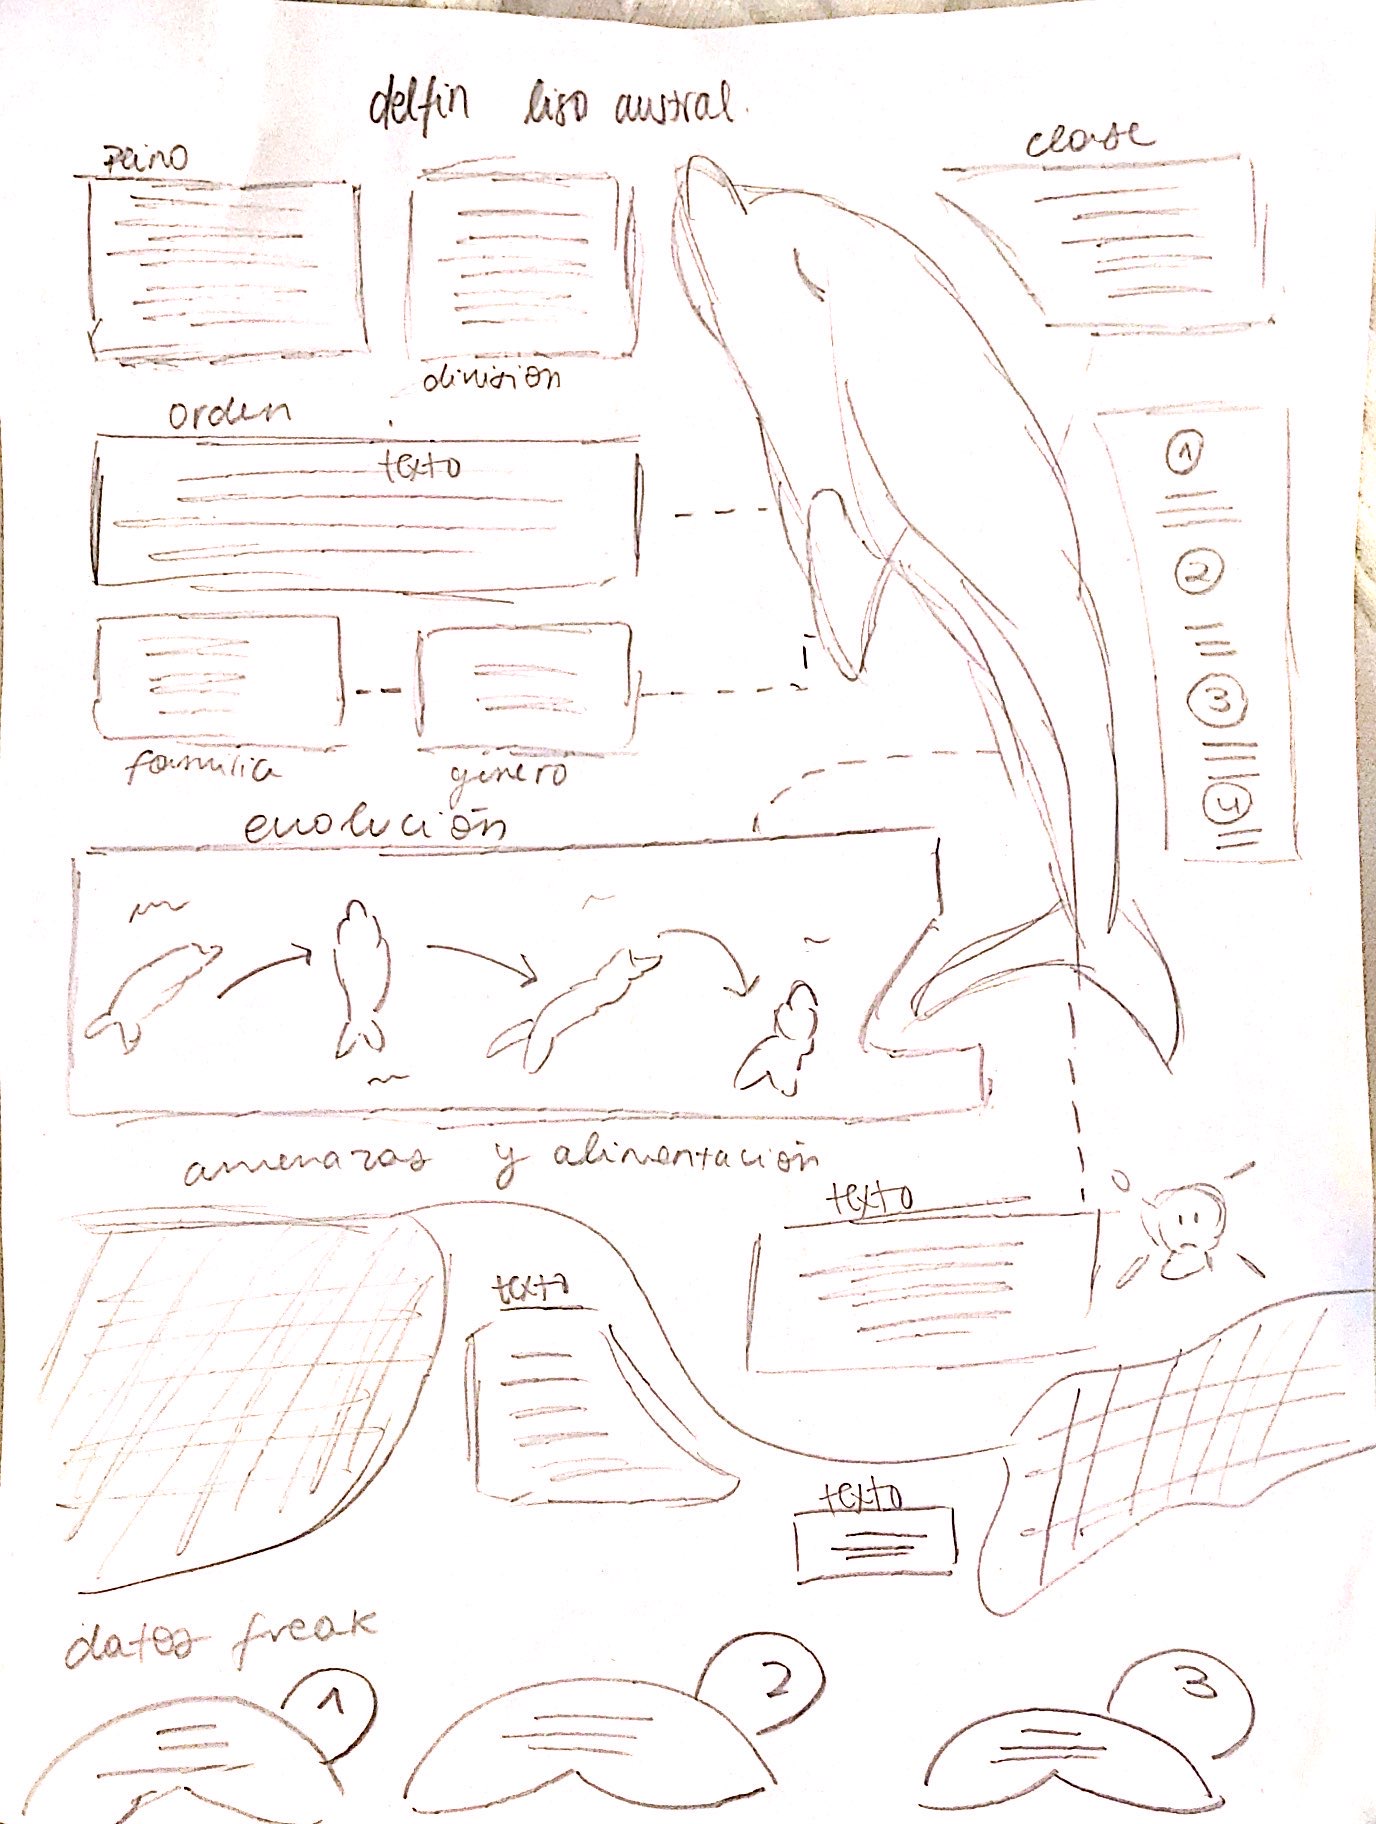 delfin liso austral.
Reino
clase
división
orden
texto
1
2
3
4
familia
género
evolución
amenazas y alimentación
texto
texto
texto
datos freak
1
2
3